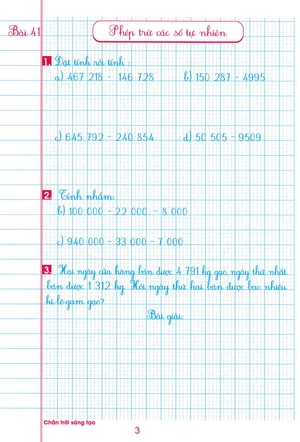 Bài 41
Phép trừ các số tự nhiên
1. Đặt tính rồi tính :
a) 467 218 - 146 728 b) 150 287 - 4995
c) 645 792 - 240 854 d) 50 505 - 9509
2. Tính nhẩm:
b) 100 000 - 22 000 - 8 000
c) 940 000 - 33 000 - 7 000
3. Hai ngày cửa hàng bán được 4 791 kg gạo, ngày thứ nhất
bán được 1 312 kg. Hỏi ngày thứ hai bán được bao nhiêu
ki lô gam gạo?
Bài giải:
Chân trời sáng tạo
3